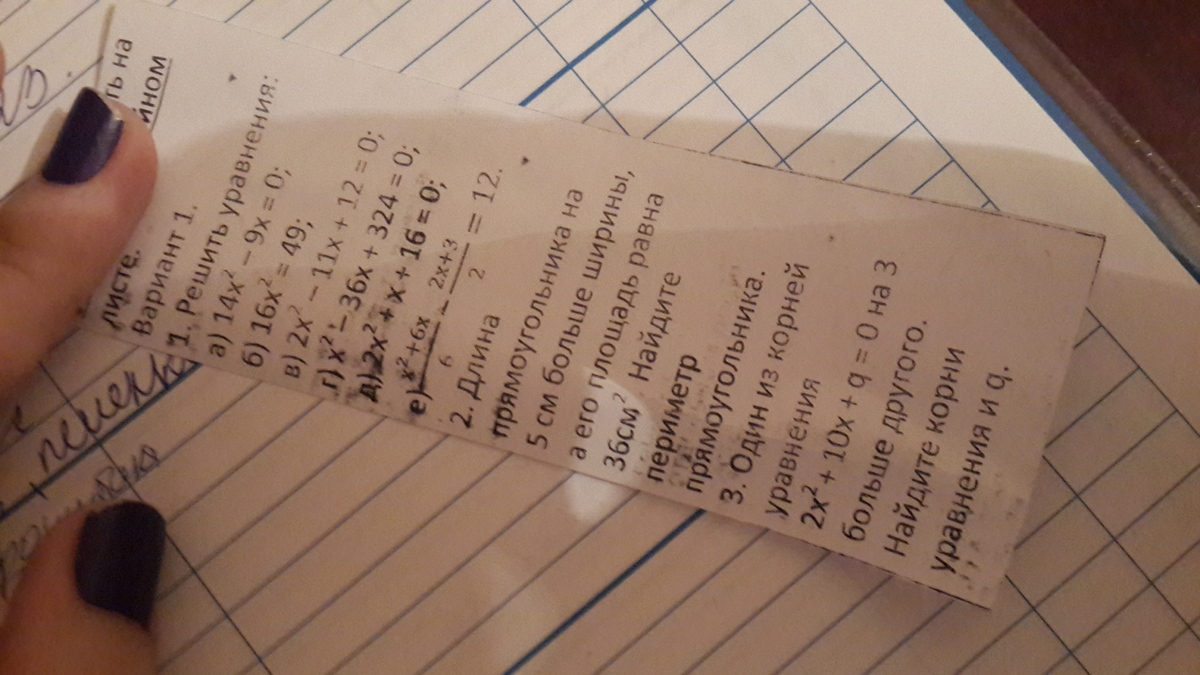 ть на
ином
листе.
Вариант 1.
1. Решить уравнения:
а) 14x² − 9x = 0;
б) 16x² = 49;
в) 2x² − 11x + 12 = 0;
г) x² − 36x + 324 = 0;
д) 2x² + x + 16 = 0;
е) (x²+6x)/6 − (2x+3)/2 = 12.
2. Длина
прямоугольника на
5 см больше ширины,
а его площадь равна
36см² Найдите
периметр
прямоугольника.
3. Один из корней
уравнения
2x² + 10x + q = 0 на 3
больше другого.
Найдите корни
уравнения и q.